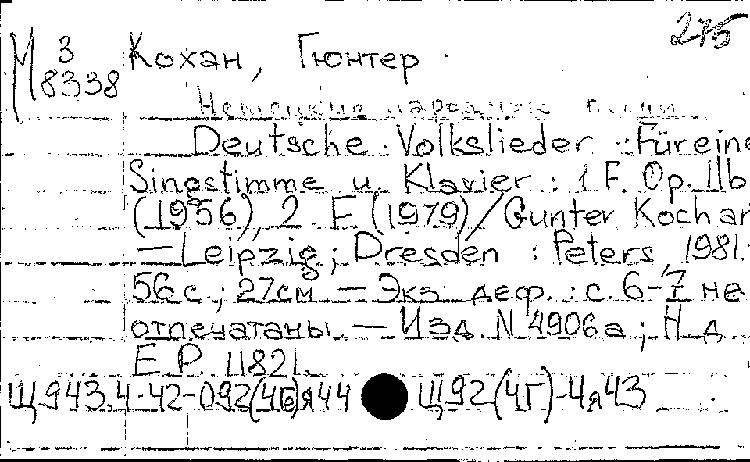 275
М 3 Кохан, Гюнтер
8338
Немецкие народные песни
Deutsche Volkslieder : Für eine
Singstimme u. Klavier : 1 F. Op. 11b
(1956), 2. F. (1979) / Gunter Kochan
— Leipzig ; Dresden : Peters, 1981.
56 с. ; 27 см — Экз. деф. : с. 6-7 не
отпечатаны. — Изд. N 4906а ; Н. д.
E. P. 11821.
Щ943.4-42-092(4Г)я44 Щ92(4Г)-4я43